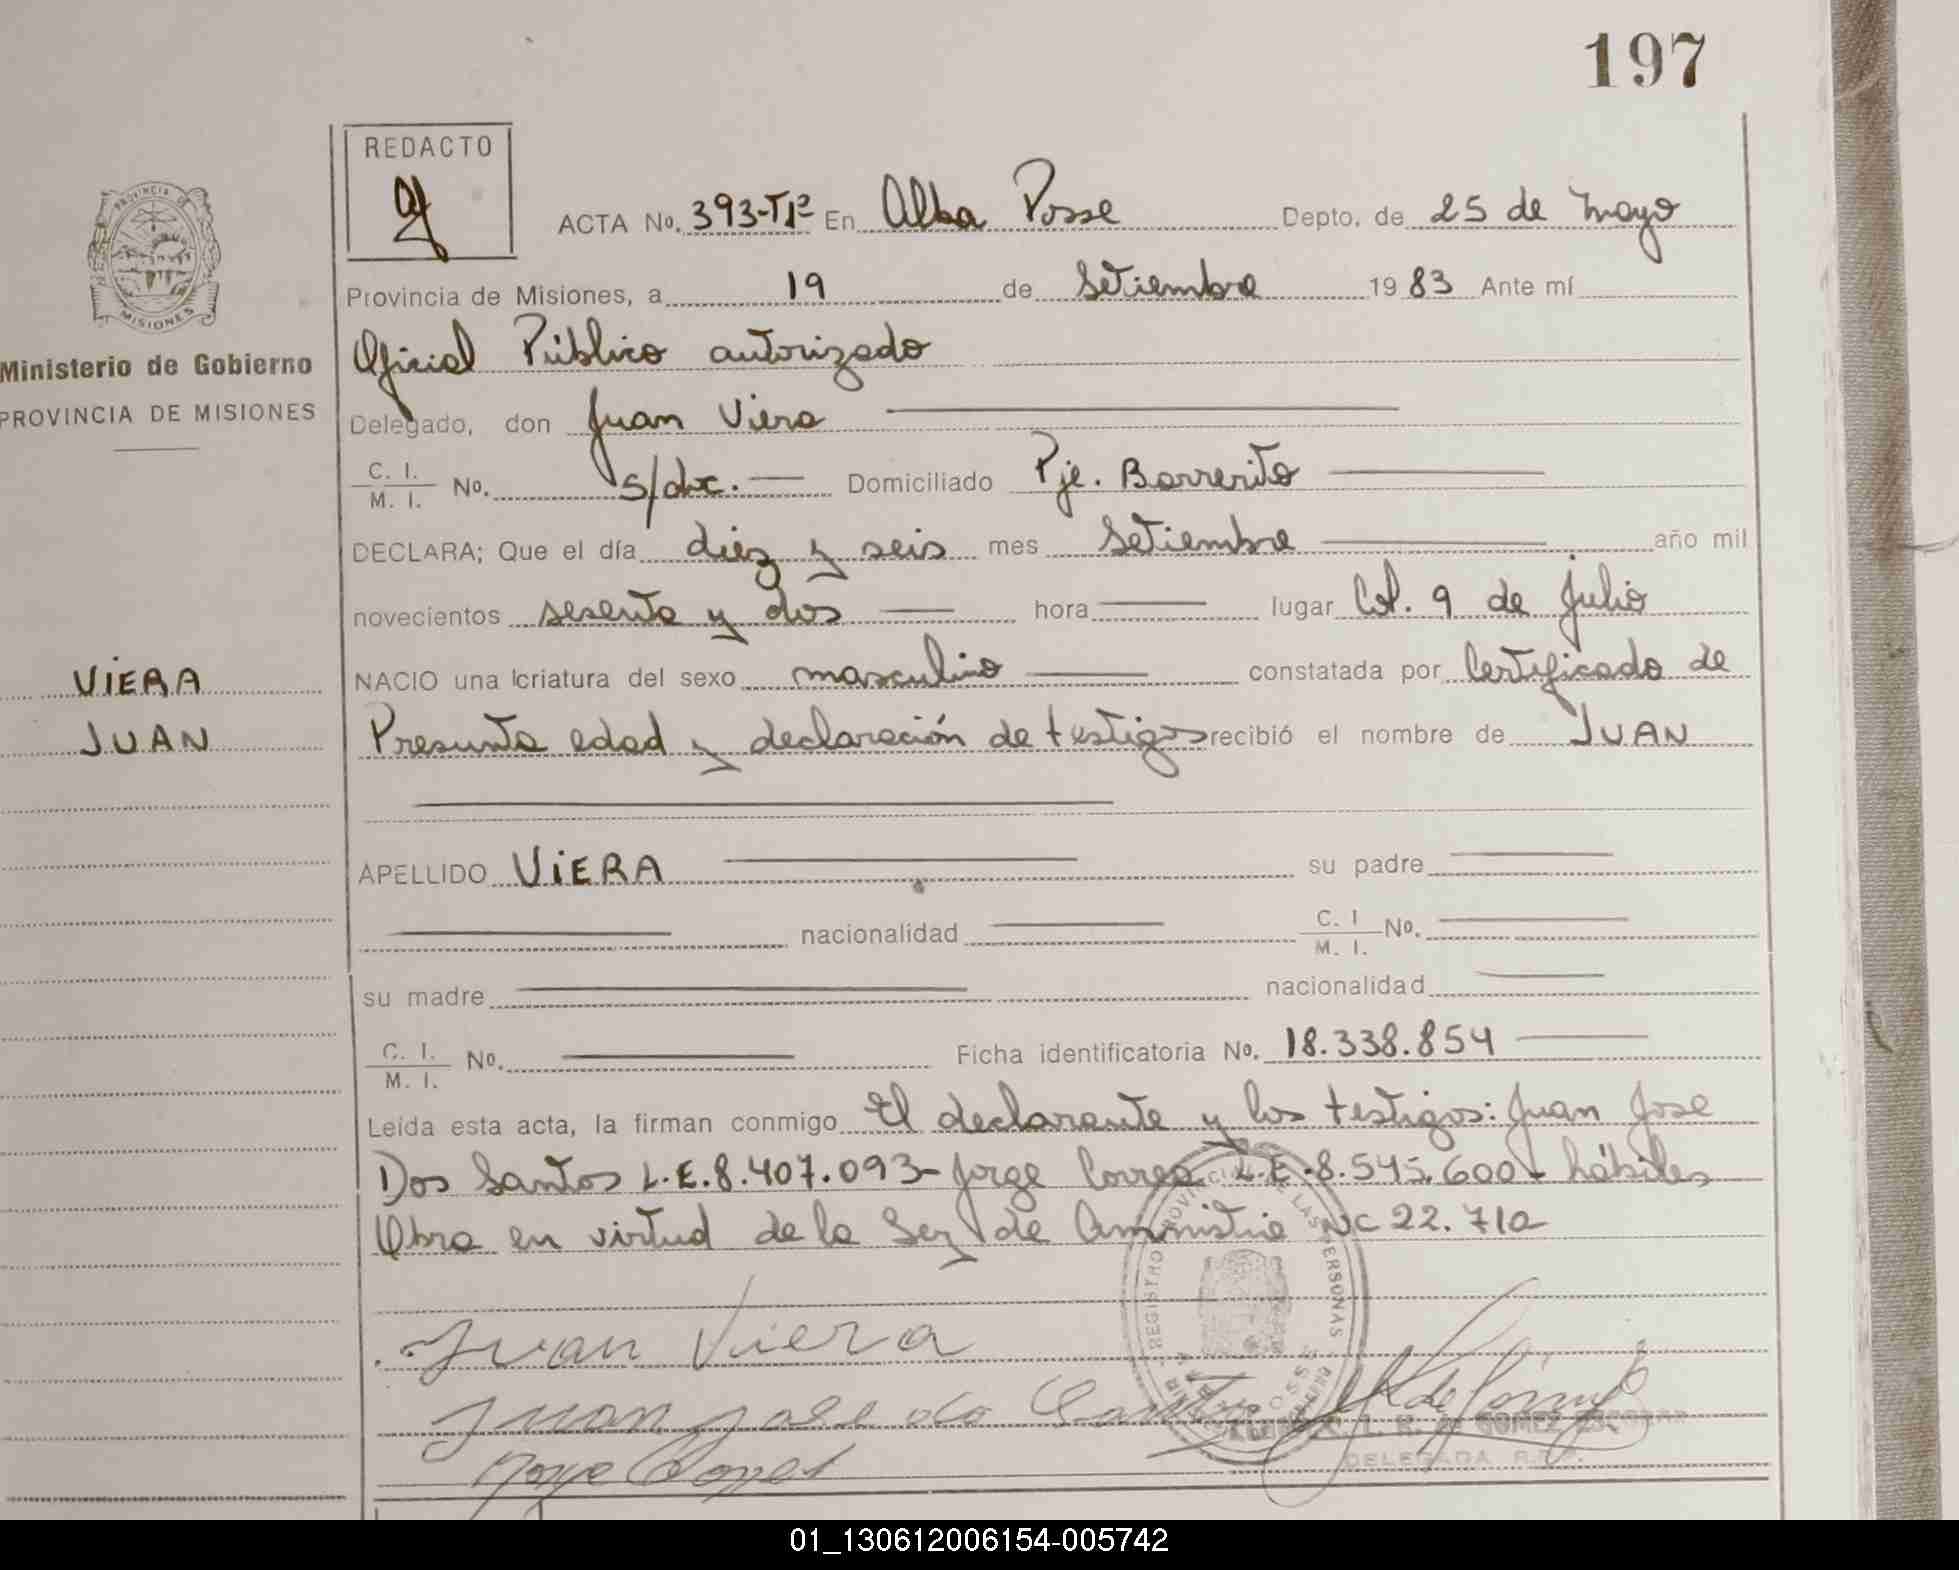 197
REDACTO
ACTA No. 393-Tº1º En Alba Posse Depto. de 25 de Mayo
Provincia de Misiones, a 19 de Setiembre 1983 Ante mí
PROVINCIA DE
MISIONES
Ministerio de Gobierno
PROVINCIA DE MISIONES
Oficial Público autorizado
Delegado, don Juan Viera
C. I.
M. I. No. s/doc. Domiciliado Pje. Barrerito
DECLARA; Que el día diez y seis mes Setiembre año mil
novecientos sesenta y dos hora lugar Col. 9 de Julio
VIERA
JUAN
NACIO una criatura del sexo masculino constatada por Certificado de
Presunta edad y declaración de testigos recibió el nombre de JUAN
APELLIDO VIERA su padre
nacionalidad C. I
M. I. No.
su madre nacionalidad
C. I.
M. I. No. Ficha identificatoria No. 18.338.854
Leída esta acta, la firman conmigo El declarante y los testigos: Juan Jose
Dos Santos L.E.8.407.093- Jorge Correa L.E.8.545.600- hábiles
Obra en virtud de la Ley de Amnistia Nº 22.710
REGISTRO PROVINCIAL DE LAS PERSONAS
Juan Viera
Juan Jose do Santos
L. R. de GOMEZ
DELEGADA R.P.P.
01_130612006154-005742